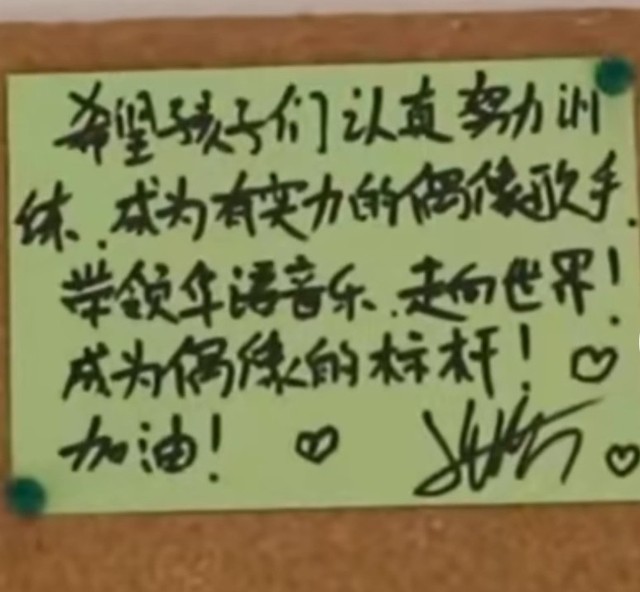 希望孩子们认真努力训
练、成为有实力的偶像歌手、
带领华语音乐、走向世界！
成为偶像的标杆！
加油！